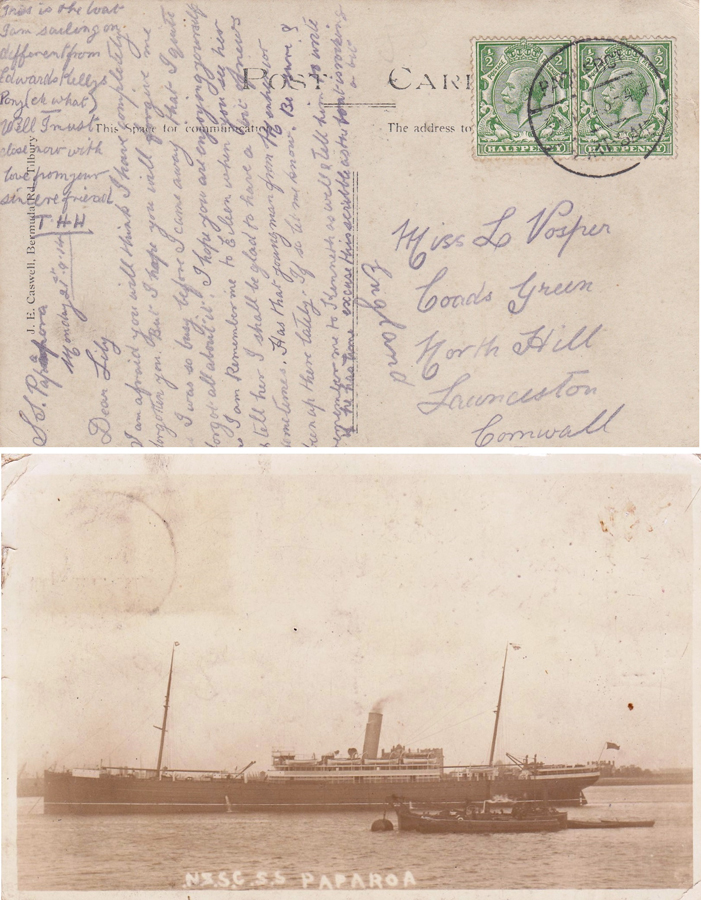 This is the boat
I am sailing on
different from
Edwards Kellys
Pony (eh what)
Will I must
close now with
love from your
sincere friend
T H H
POST CARD
This Space for communication
The address to
J. E. Caswell, Bermuda Rd. Tilbury.
PACKET
HALFPENNY
HALFPENNY
S.S. Paparoa
Monday 21st
Dear Lily
I am afraid you will think I have completely
forgotten you. But I hope you will forgive me
as I was so busy before I came away that I quite
forgot all about it. I hope you are enjoying yourself
as I am Remember me to Eileen when you see her
& tell her I shall be glad to have a bit of news
sometimes. Has that young man from
been up there lately. If so let me know. Be sure &
remember me to Kenneth as well & tell him to write
if he has time excuse this scribble as the boat is rocking
a bit
Miss L Vosper
Coads Green
North Hill
Launceston
Cornwall
England
N.Z.S.C. S.S PAPAROA